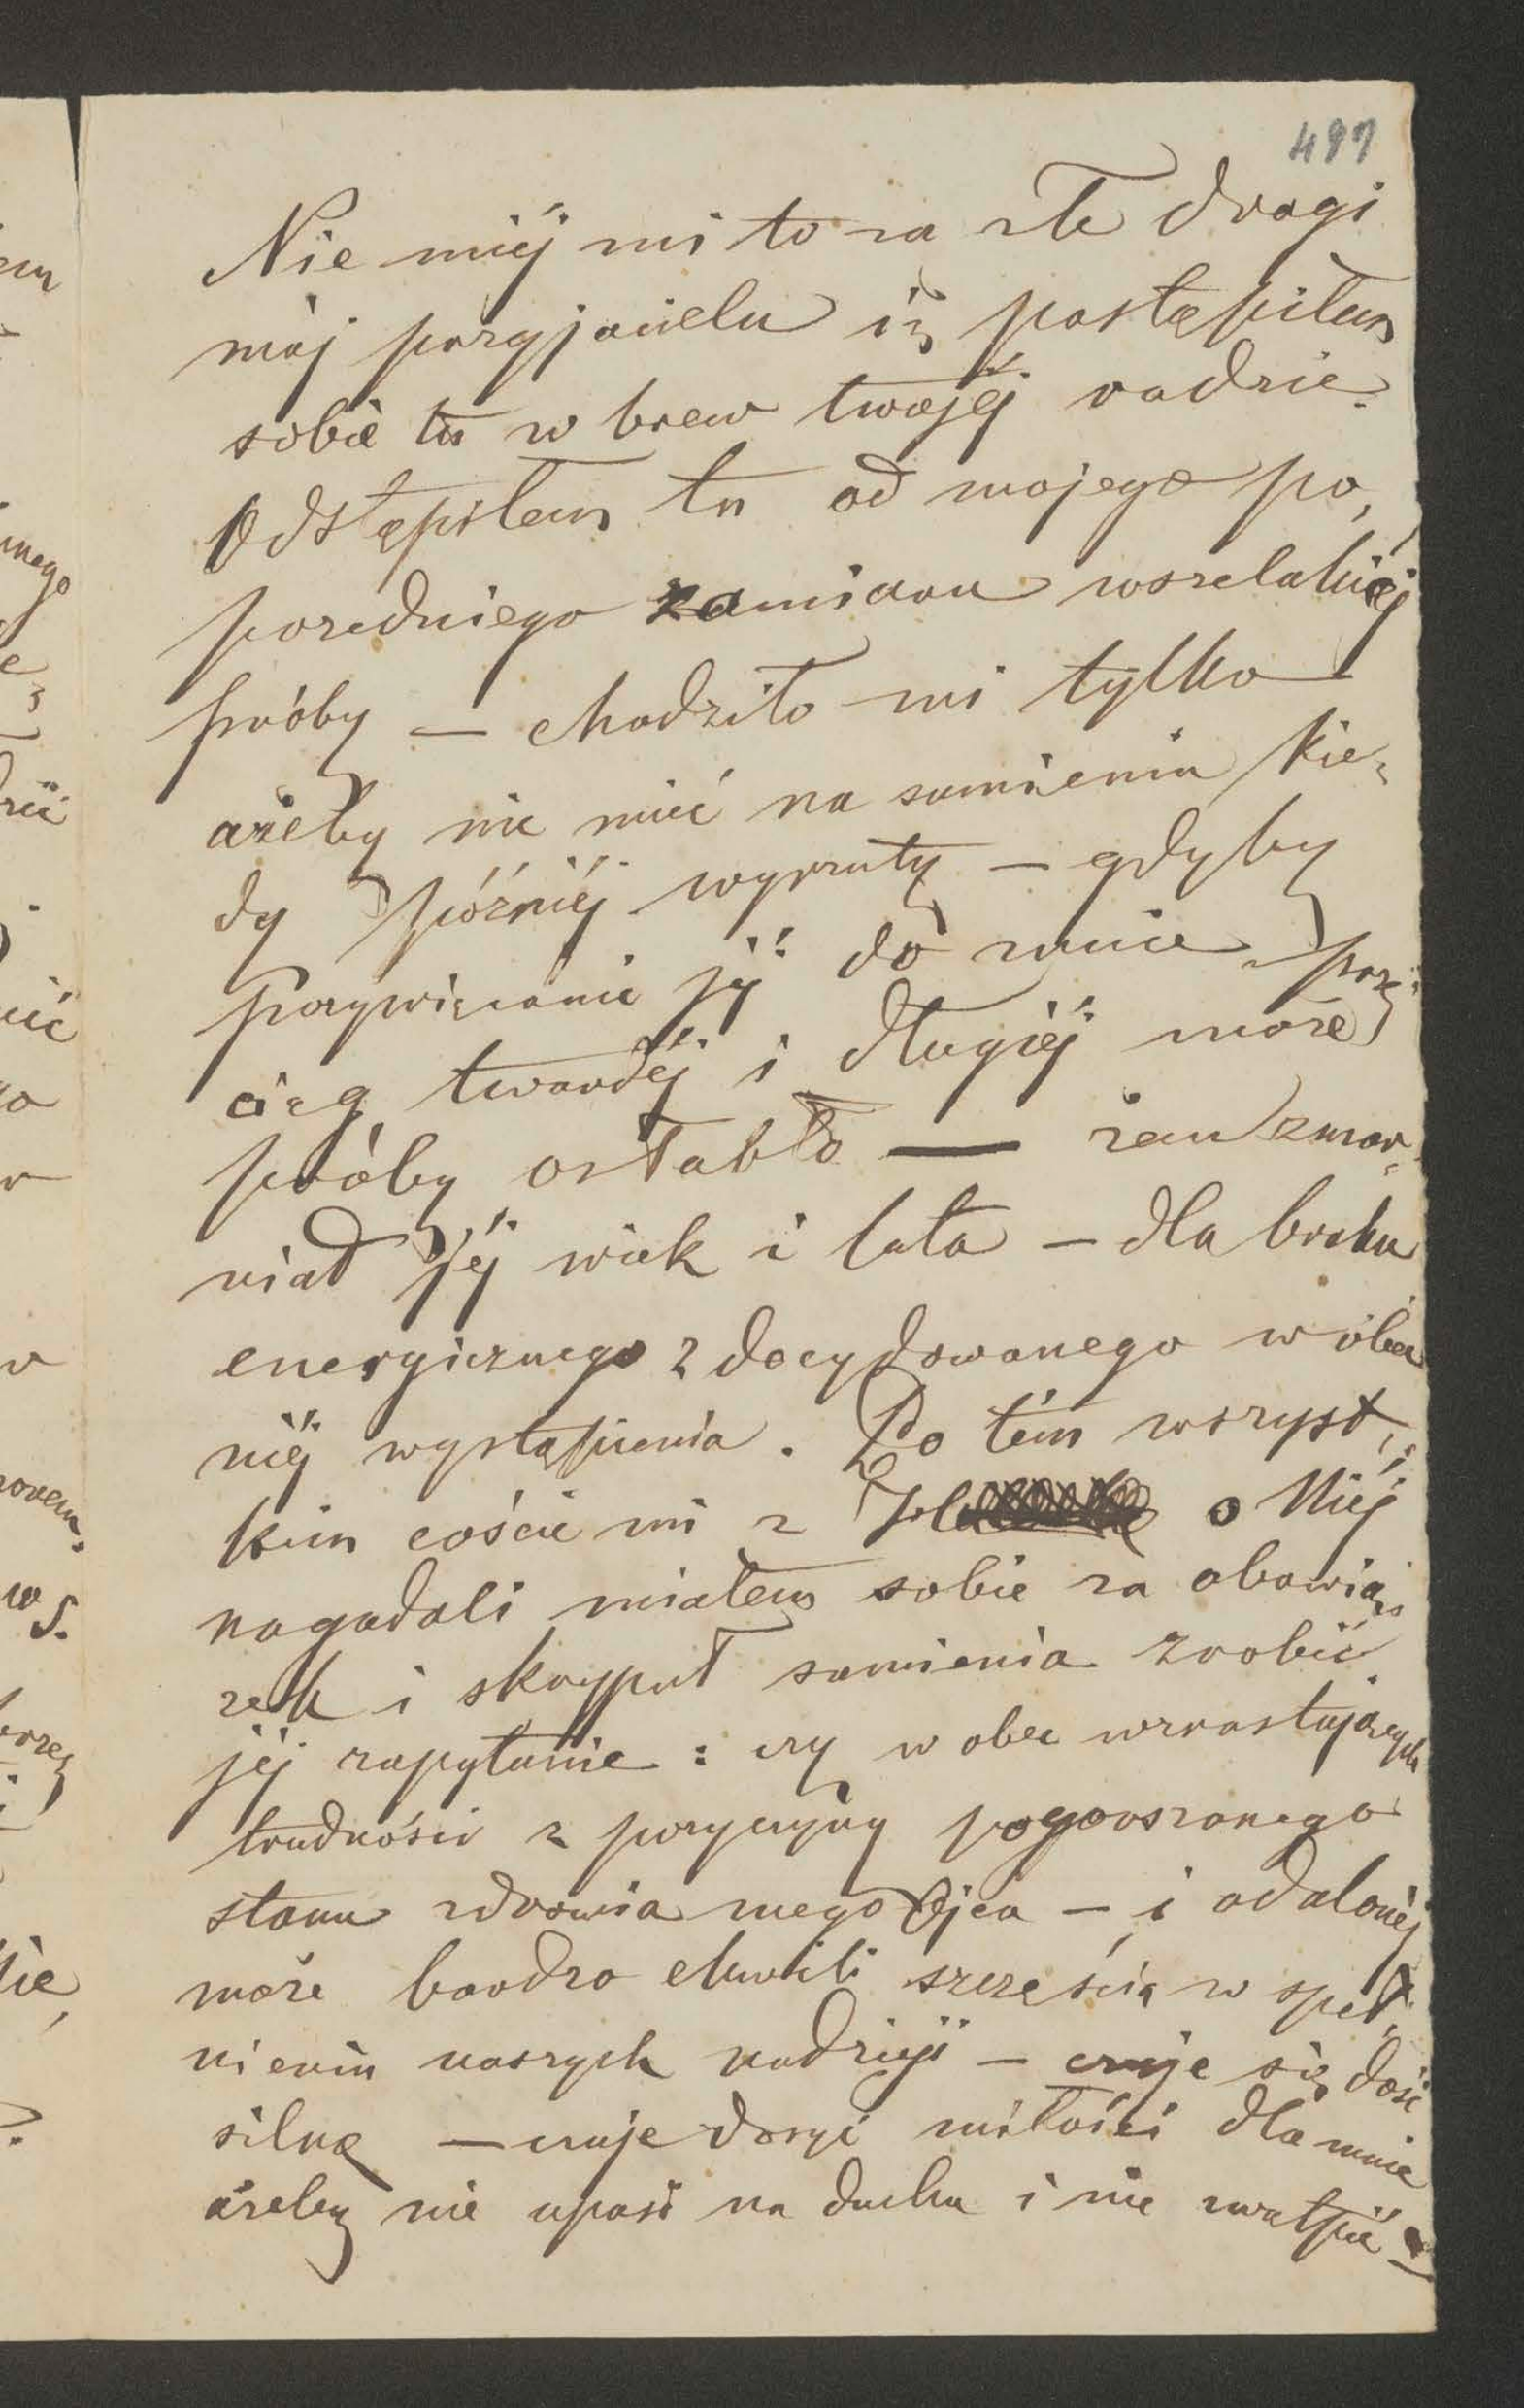 487
Nie miéj mi to za złe drogi
mój przyjacielu iż postąpiłem
sobie tu w brew twojéj radzie.
Odstąpiłem tu od mojego po„
przedniego zamiaru wszelakiéj
próby — chodziło mi tylko
ażeby nie mieć na sumieniu kie„
dy późniéj wyrzuty — gdyby
przywiązanie jéj do mnie prze„
ciąg twardéj i długiéj może
próby osłabło — żem zmar„
niał jéj wiek i lata — dla braku
energicznego zdecydowanego w óbec
niéj wystąpienia. Po tém wszyst„
kim coście mi z o Niéj
nagadali miałem sobie za obowią„
zek i skrypuł sumienia zrobić
jéj zapytanie: czy w obec wzrastających
trudności z przyczyny pogorszonego
stanu zdrowia mego Ojca — i odalonéj
może bardzo chwili szczęścia w speł„
nieniu naszych nadzieji — czuje się dość
silną — czuje dosyć miłości dla mnie
ażeby nie upaść na duchu i nie zwątpić —